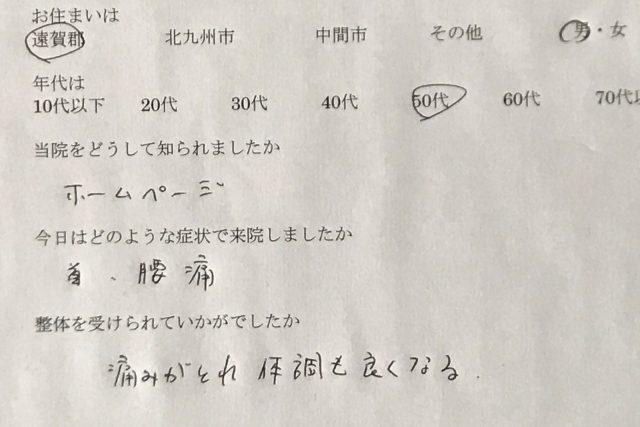 お住まいは
遠賀郡 北九州市 中間市 その他 男・女
年代は
10代以下 20代 30代 40代 50代 60代 70代以
当院をどうして知られましたか
ホームページ
今日はどのような症状で来院しましたか
首、腰痛
整体を受けられていかがでしたか
痛みがとれ 体調も良くなる.